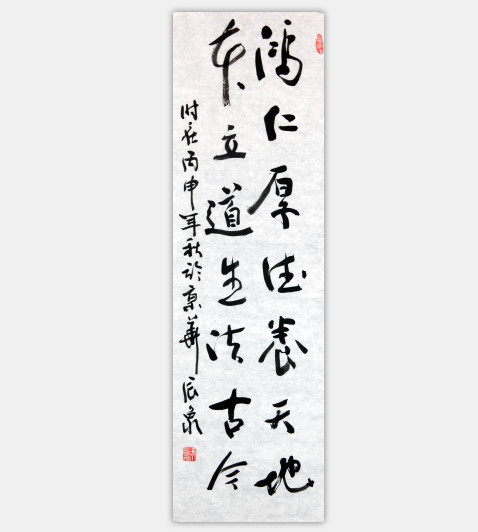 鸿仁厚德养天地
本立道生法古今
时在丙申年秋于京华辰泉